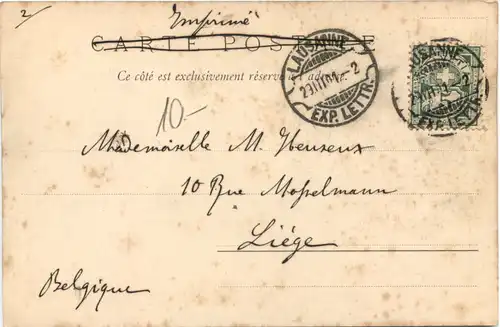 2/
Imprimé
CARTE POSTALE
Ce côté est exclusivement réservé à l'adresse.
LAUSANNE
EXP. LETTR.
LAUSANNE
EXP. LETTR.
10-
Mademoiselle M. Heuseux
10 Rue Mosselmann
Liége
Belgique